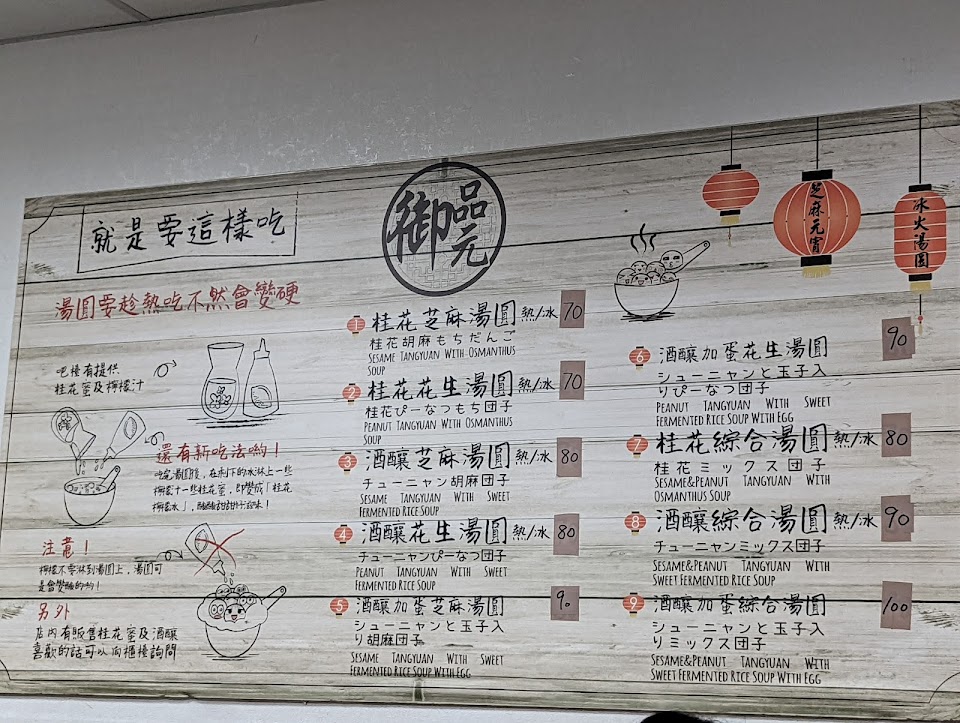 就是要這樣吃
湯圓要趁熱吃不然會變硬
吧檯有提供
桂花蜜及檸檬汁
還有新吃法喲！
吃完湯圓後，在剩下的冰淋上一些
檸檬汁+一些桂花蜜，即變成「桂花
檸檬冰」，酸酸甜甜好滋味！
注意！
檸檬不要淋到湯圓上，湯圓可
是會變酸的喲！
另外
店內有販售桂花蜜及酒釀
喜歡的話可以向櫃檯詢問
御品元
芝麻元宵
冰火湯圓
1 桂花芝麻湯圓 熱/冰 70
桂花胡麻もちだんご
Sesame Tangyuan With Osmanthus
Soup
2 桂花花生湯圓 熱/冰 70
桂花ぴーなつもち団子
Peanut Tangyuan With Osmanthus
Soup
3 酒釀芝麻湯圓 熱/冰 80
チューニャン胡麻団子
Sesame Tangyuan With Sweet
Fermented Rice Soup
4 酒釀花生湯圓 熱/冰 80
チューニャンぴーなつ団子
Peanut Tangyuan With Sweet
Fermented Rice Soup
5 酒釀加蛋芝麻湯圓 90
シューニャンと玉子入
り胡麻団子
Sesame Tangyuan With Sweet
Fermented Rice Soup With Egg
6 酒釀加蛋花生湯圓 90
シューニャンと玉子入
りぴーなつ団子
Peanut Tangyuan With Sweet
Fermented Rice Soup With Egg
7 桂花綜合湯圓 熱/冰 80
桂花ミックス団子
Sesame&Peanut Tangyuan With
Osmanthus Soup
8 酒釀綜合湯圓 熱/冰 90
チューニャンミックス団子
Sesame&Peanut Tangyuan With
Sweet Fermented Rice Soup
9 酒釀加蛋綜合湯圓 100
シューニャンと玉子入
りミックス団子
Sesame&Peanut Tangyuan With
Sweet Fermented Rice Soup With Egg